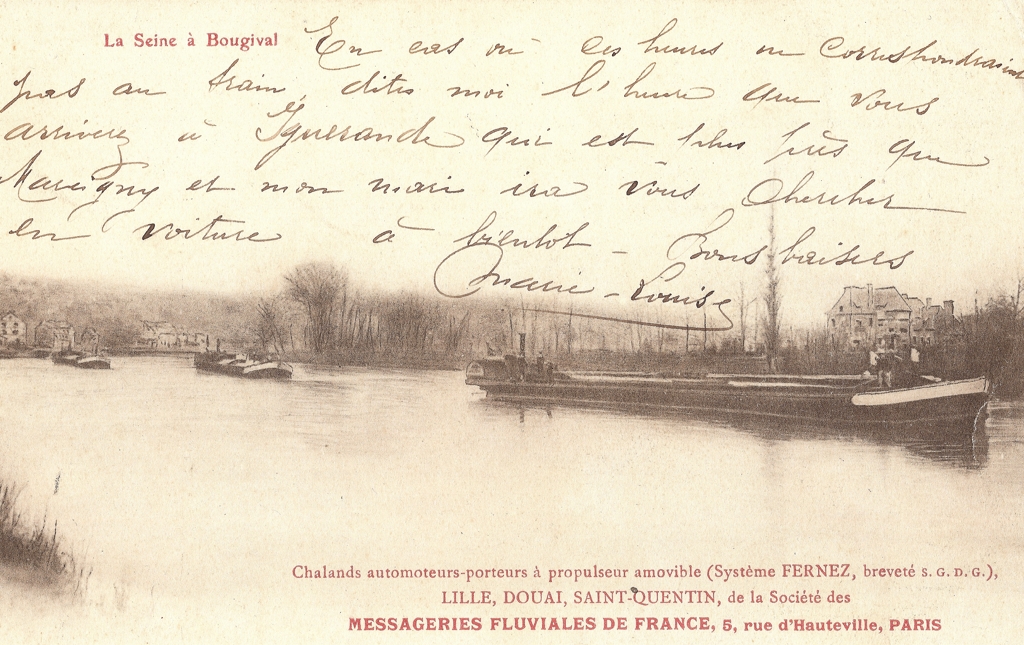 La Seine à Bougival
En cas où ces heures ne correspondraient
pas au train, dites moi l'heure que vous
arrivez à Iguerande qui est plus près que
Marcigny et mon mari ira vous chercher
en voiture à bientot - Bons baisers
Marie-Louise
Chalands automoteurs-porteurs à propulseur amovible (Système FERNEZ, breveté S.G.D.G.),
LILLE, DOUAI, SAINT-QUENTIN, de la Société des
MESSAGERIES FLUVIALES DE FRANCE, 5, rue d'Hauteville, PARIS